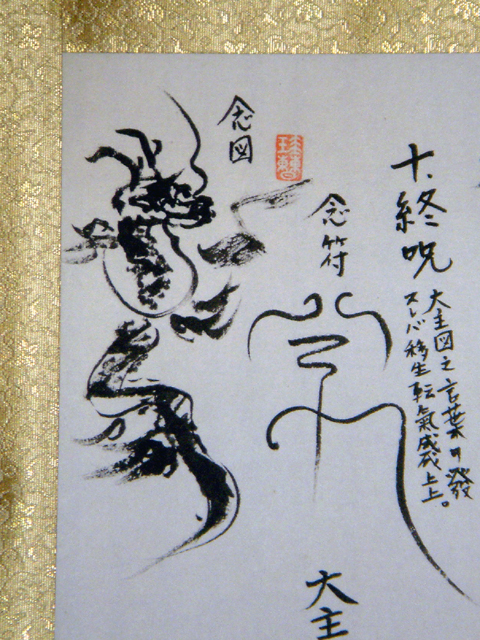 十、終呪
大主図之言葉ヲ發
スレバ移生転氣威成上上。
念符
念図
大主